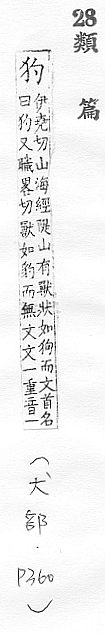 28 類篇
犳
伊堯切山海經隄山有獸狀如狗而文首名
曰犳又職畧切獸如豹而無文文一重音一
(犬部. P360)